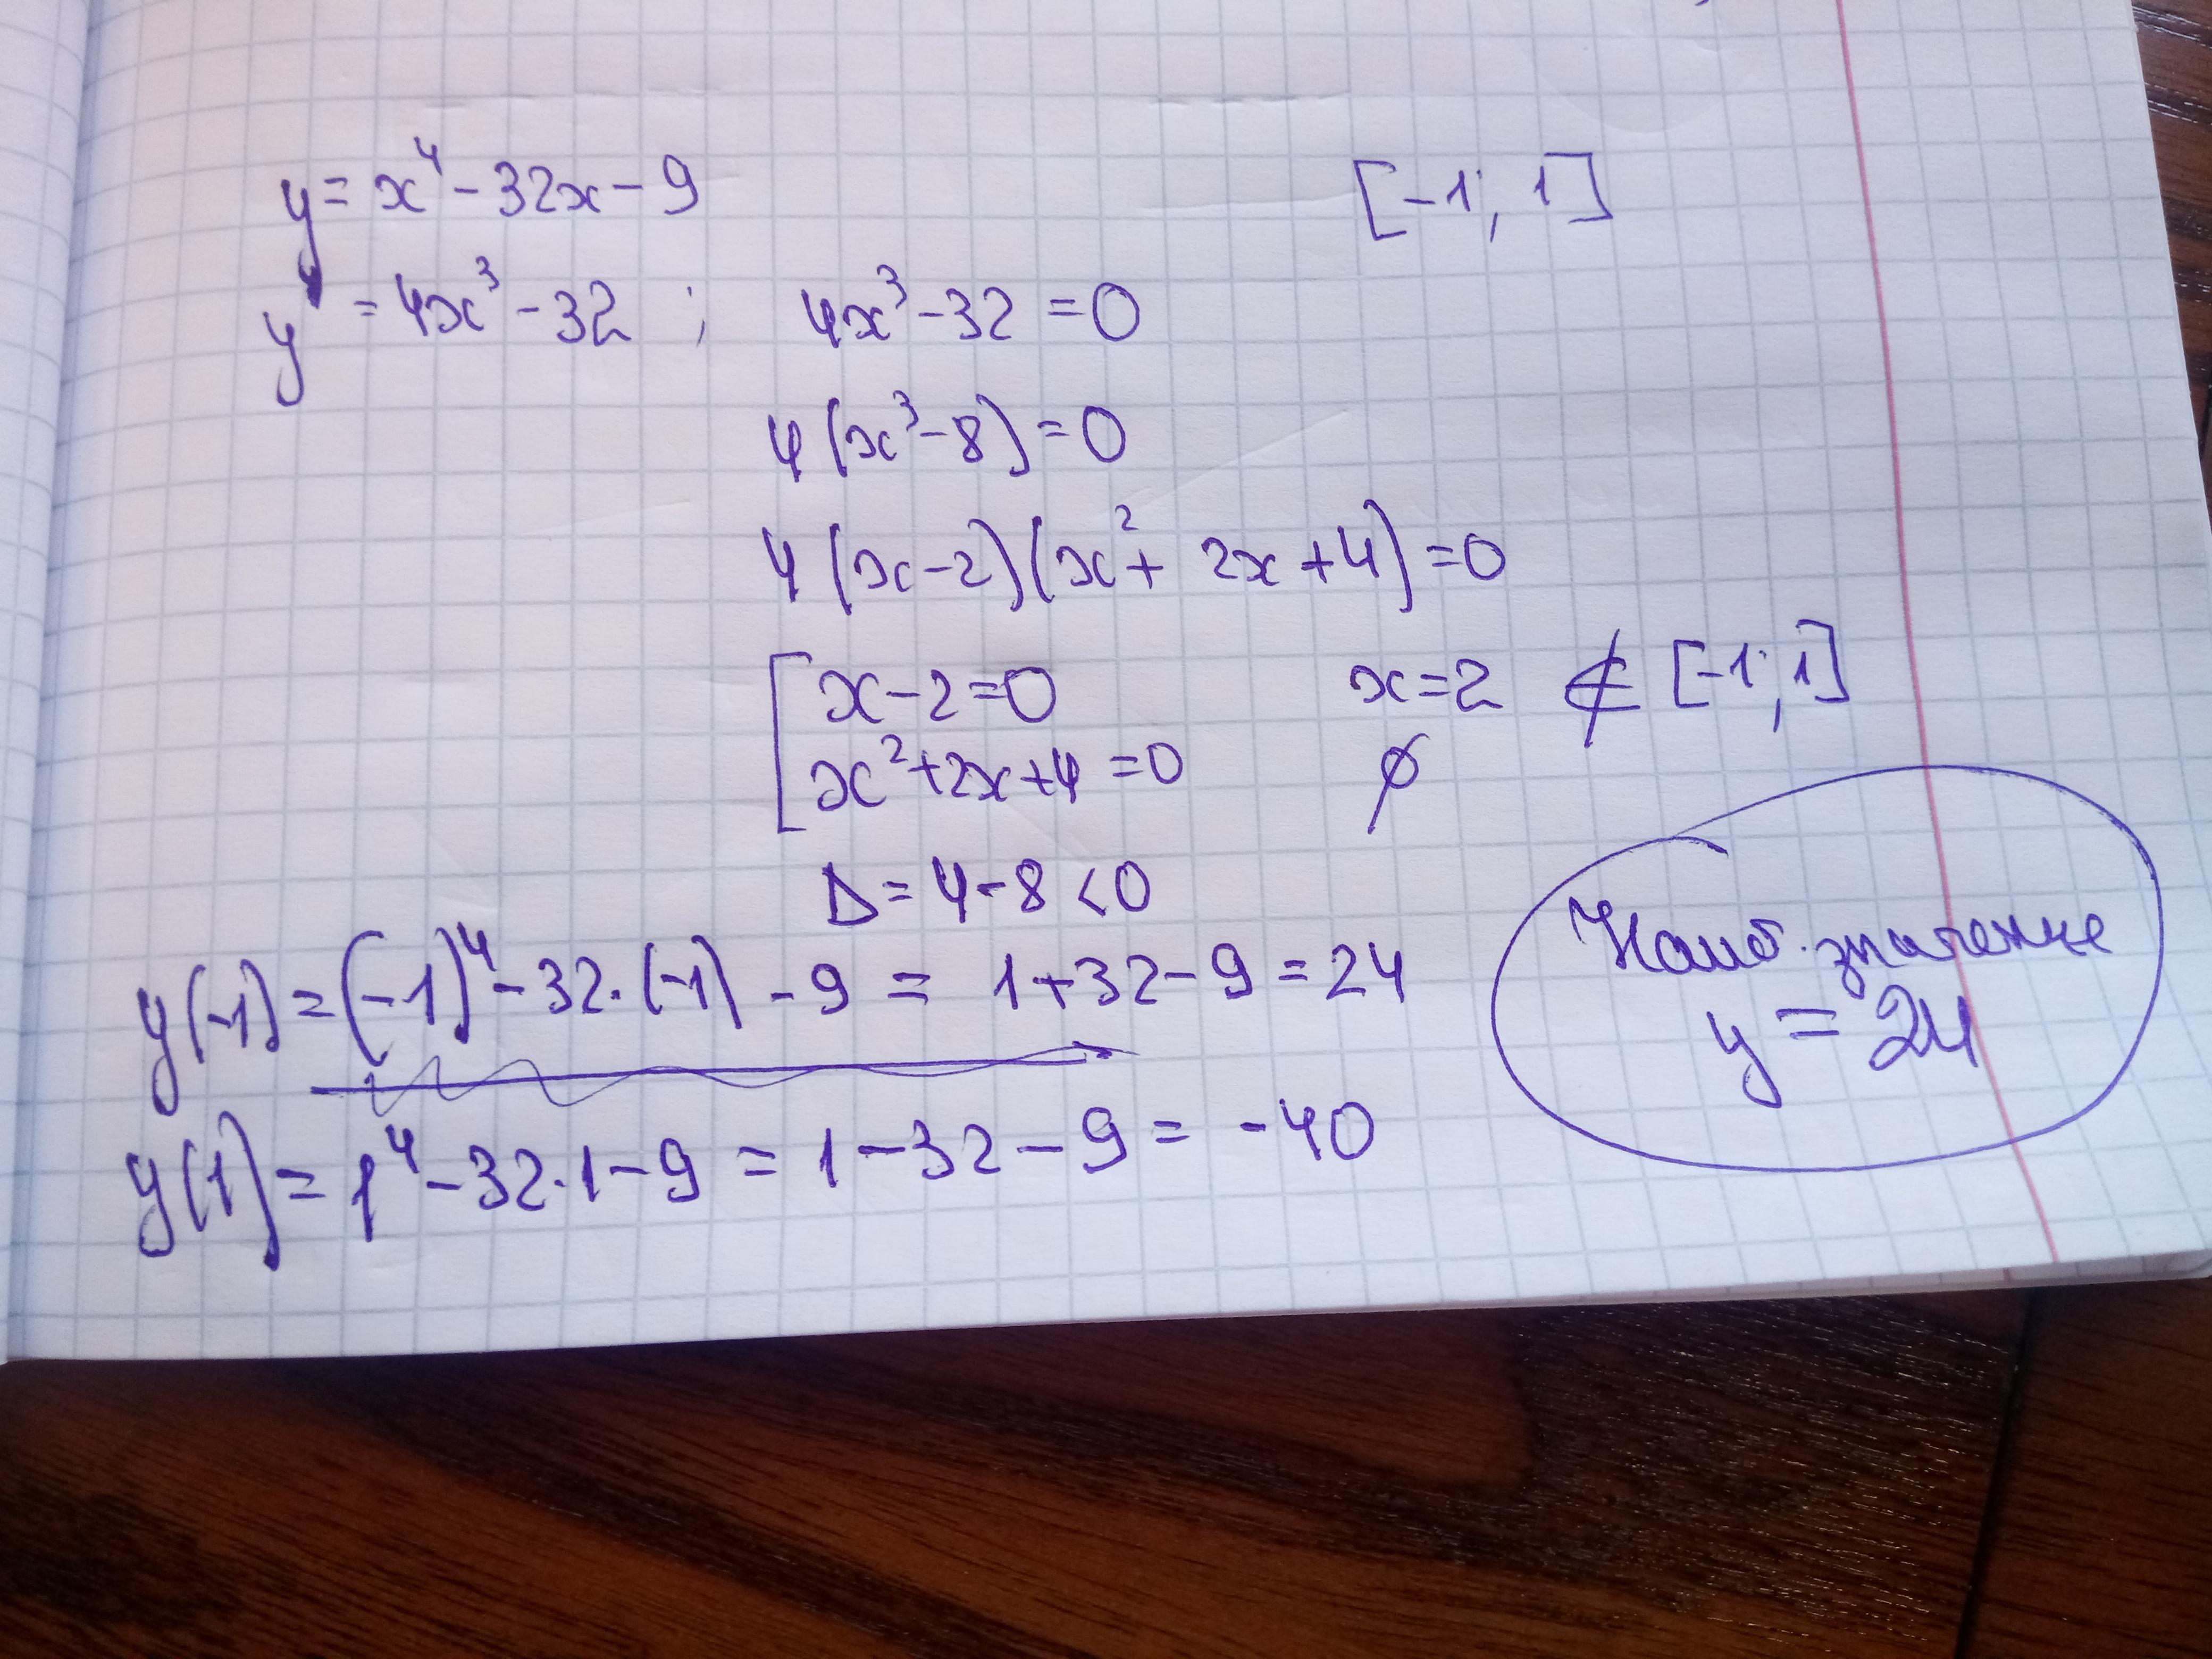 y = x⁴ - 32x - 9 [-1; 1]
y' = 4x³ - 32 ; 4x³ - 32 = 0
4(x³ - 8) = 0
4(x - 2)(x² + 2x + 4) = 0
x - 2 = 0 x = 2 ∉ [-1; 1]
x² + 2x + 4 = 0 ∅
D = 4 - 8 < 0
y(-1) = (-1)⁴ - 32 · (-1) - 9 = 1 + 32 - 9 = 24
y(1) = 1⁴ - 32 · 1 - 9 = 1 - 32 - 9 = -40
Наиб. значение
y = 24